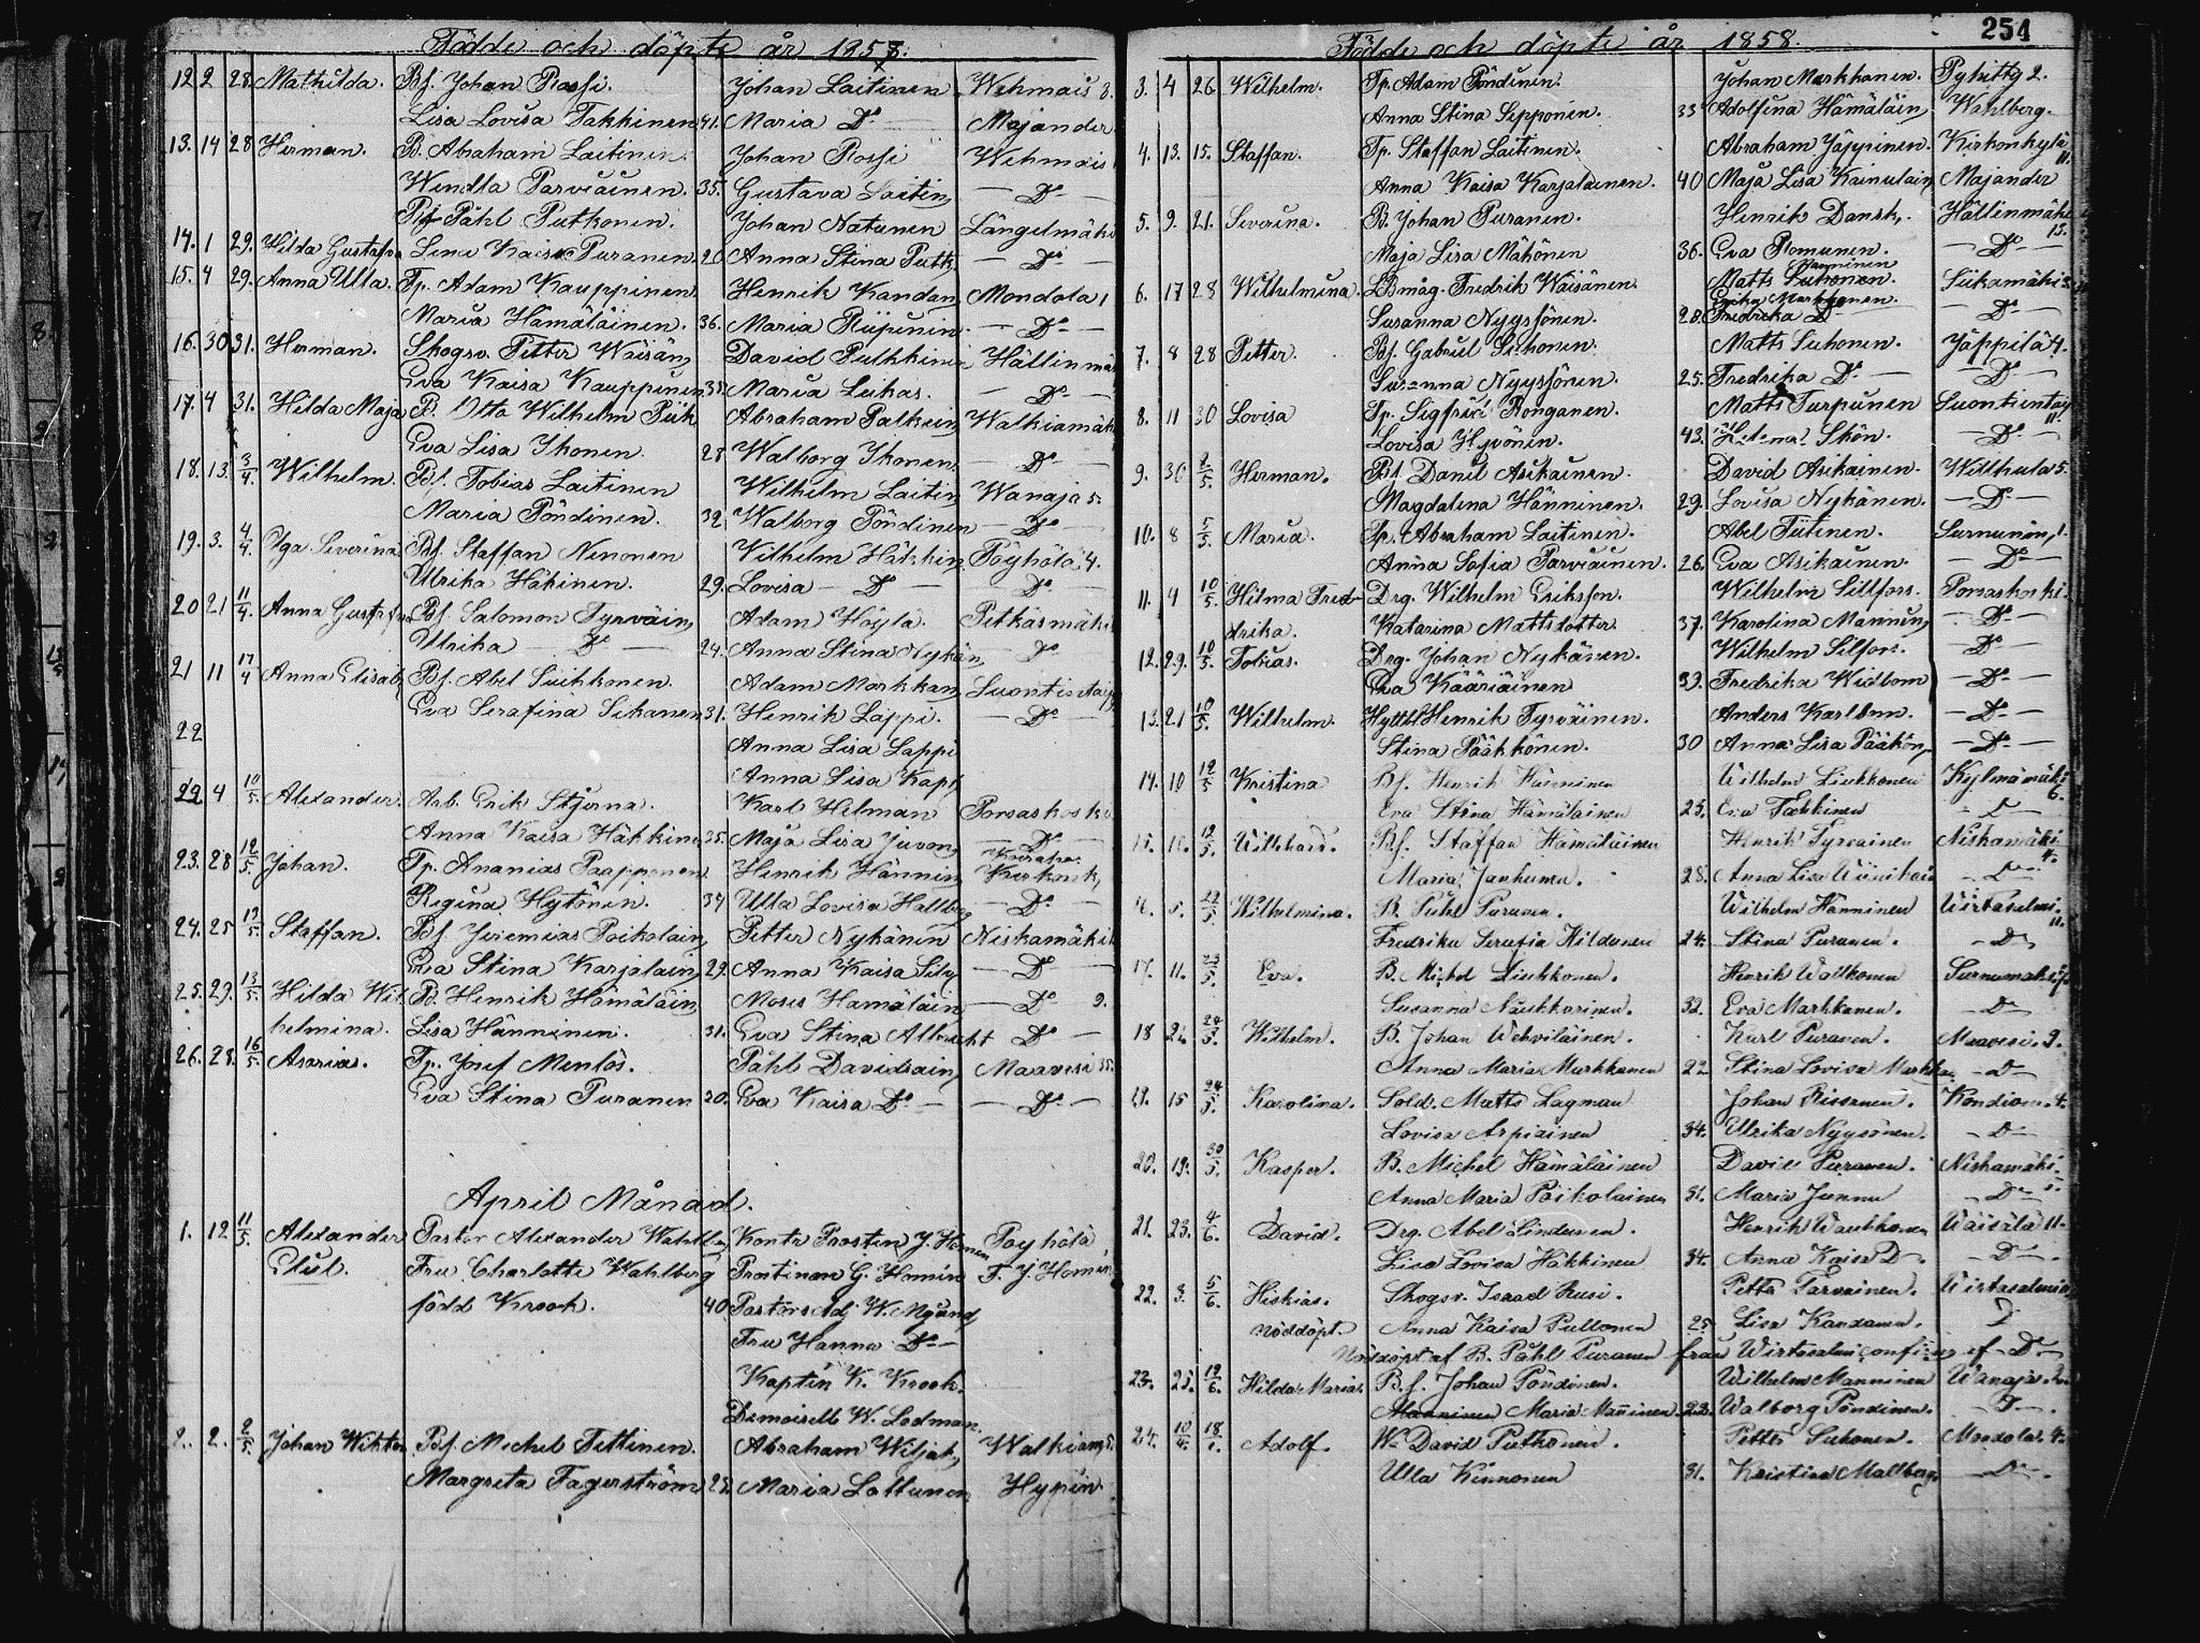 Födde och döpte år 1858.
12 2 28. Mathilda. Bf. Johan Rossi. Johan Laitinen Wehmais 8.
Lisa Lovisa Takkinen 41. Maria Do Majander
13. 14 28 Herman. B. Abraham Laitinen. Johan Rossi Wehmais
Wendla Parviainen. 35. Gustava Laitin — Do —
Bf Påhl Putkonen. Johan Natunen Längelmäki
14. 1 29. Hilda Gustafva Lena Kaisa Puranen. 20 Anna Stina Putk — Do —
15. 4 29. Anna Ulla. Tp. Adam Kauppinen. Henrik Kandan Mondola 1
Maria Hämäläinen. 36. Maria Riipinin. — Do —
16. 30 31. Herman. Skogsv. Petter Wäisän David Pulkkinen Hällinmä
Eva Kaisa Kauppinen 35. Maria Leikas. — Do —
17. 4 31. Hilda Maja B. Otto Wilhelm Piik Abraham Palkein Walkiamäk
Eva Lisa Ikonen. 28 Walborg Ikonen. — Do —
18. 13. 3/4. Wilhelm. Bf. Tobias Laitinen Wilhelm Laitin Wanaja 5.
Maria Pöndinen. 32. Walborg Pöndinen — Do —
19. 3. 4/4. Ida Severina Bf. Staffan Nenonen Wilhelm Häkkin Pöyhölä 4.
Ulrika Häkinen. 29. Lovisa — Do — — Do —
20 21 11/4. Anna Gustafva Bf. Salomon Tyrväin Adam Höylä. Pitkäsmäki
Ulrika — Do — 24. Anna Stina Nykän — Do
21 11 17/4 Anna Elisab Bf. Abel Suihkonen. Adam Markkan Suontientaip
Eva Serafina Sikanen 31. Henrik Lappi. — Do —
22 Anna Lisa Lappi
Anna Lisa Kapi
22 4 10/5. Alexander. Arb. Erik Stjerna. Karl Helman Porsaskoski
Anna Kaisa Häkkin 35. Maja Lisa Juvon — Do —
23. 28 12/5. Johan. Tp. Ananias Paapponen. Henrik Hännin Kirkonk,
Regina Hytönin. 34 Ulla Lovisa Hallberg — Do —
24. 25 13/5. Staffan. Bf. Jeremias Poikolain Petter Nykänen Niskamäki
Eva Stina Karjalain 29. Anna Kaisa Silv — Do —
25. 29. 13/5. Hilda Wil B. Henrik Hämäläin Moses Hamäläin — Do — 9.
helmina. Lisa Hänninen. 31. Eva Stina Albrecht Do —
26. 28. 16/5. Asarias. Tp. Josef Menlös. Påhl Davidsain Maavesi 35.
Eva Stina Puranen 20. Eva Kaisa Do — — Do —
April Månad.
1. 12 11/5. Alexander Pastor Alexander Wahlb Kontr Prosten J. Homen Pöyhölä
Elul. Fru Charlotte Wahlberg Prostinan G. Homén F. J. Homén
född Krook. 40 Pastors Adj W. Nyund
Fru Hanna Do —
Kaptin K. Krook.
Demoiselle W. Lodman.
2. 2. 2/5. Johan Wiktor Bf. Michel Tittinen. Abraham Wiljak Walkiam 5.
Margreta Fagerström 28 Maria Lattunen Hypin
254
Födde och döpte år 1858.
3. 4 26 Wilhelm. Tp. Adam Pöndinen. Johan Markkanen. Pyhitty 2.
Anna Stina Sepponen. 33 Adolfina Hämäläin Wahlberg.
4. 13. 15. Staffan. Tp. Staffan Laitinen. Abraham Jäppinen. Kirkonkylä 11.
Anna Kaisa Karjalainen. 40 Maja Lisa Kainulain Majander
5. 9. 21. Severina. B. Johan Puranen. Henrik Dansk. Hällinmäki 13.
Maja Lisa Mähönen 36. Eva Romunen. — Do —
6. 17 28 Wilhelmina. LBmåg. Fredrik Wäisänen. Matts Suhonen. Manninen Siikamäki
Susanna Nyyssönen. 28. Fredrika Do Erika Markkanen. — Do —
7. 8 28 Petter. Bf. Gabriel Suhonen. Matts Suhonen. Jäppilä 4.
Susanna Nyyssönen. 25. Fredrika Do — — Do —
8. 11 30 Lovisa Tp. Sigfrid Ronganen. Matts Turpunen Suontientaip 11.
Lovisa Hyvönen. 43. Helena Skön. — Do —
9. 30 2/5. Herman. Bf. Danil Asikainen. David Asikainen. Willhula 5.
Magdalena Hänninen. 29. Lovisa Nykänen. — Do —
10. 8 5/5. Maria. Sp. Abraham Laitinen. Abel Tiitinen. Surnunin, 1.
Anna Sofia Parviainen. 26. Eva Asikainen. — Do —
11. 4 10/5. Hilma Fred- Drg. Wilhelm Eriksson. Wilhelm Sillfors. Porsaskoski.
drika. Katarina Mattsdotter. 37. Karolina Mannin — Do —
12. 29. 10/5. Tobias. Drg. Johan Nykänen. Wilhelm Silfors. — Do —
Eva Kääriäinen 39. Fredrika Widbom — Do —
13. 21 10/5. Wilhelm. Hyttkl Henrik Tyrväinen. Anders Karlbom. — Do —
Stina Pääkkönen. 30 Anna Lisa Pääkön — Do —
14. 10 12/5 Kristina Bf. Henrik Hänninen Wilhelm Liukkonen Kylmämäki 6.
Eva Stina Hämäläinen 25. Eva Takkinen — D —
15. 10. 12/5. Willehad. Bf. Staffan Hämäläinen Henrik Tyrväinen Niskamäki 4.
Maria Janhunen. 28. Anna Lisa Wiinikain — D —
16. 5. 22/5. Wilhelmina. B. Påhl Puranen. Wilhelm Hänninen Wirtasalmi 11.
Fredrika Serafia Hildunen 24. Stina Puranen. — D —
17. 11. 23/5. Eva. B. Michel Liukkonen. Henrik Walkonen Surnumäki
Susanna Naukkarinen. 32. Eva Markkanen. — D —
18 24. 24/5. Wilhelm. B. Johan Wehviläinen. Karl Puranen. Maavesi. 9.
Anna Maria Markkanen 22 Stina Lovisa Markkan — D —
19. 15 24/5. Karolina. Sold. Matts Lagman Johan Rissanen. Kondion. 4.
Lovisa Arpiainen 34. Ulrika Nyyssönen. — D —
20. 19. 30/5. Kasper. B. Michel Hämäläinen David Puranen. Niskamäki
Anna Maria Poikolainen 31. Maria Junnu — D —
21. 23. 4/6. David. Drg. Abel Lindunen. Henrik Wauhkonen Wäisälä 11.
Lisa Lovisa Häkkinen 34. Anna Kaisa D — D —
22. 3. 5/6. Hiskias. Skogsv. Isaad Rusi. Petter Parvainen. Wirtasalmi
nöddöpt. Anna Kaisa Pullonen 25 Lisa Kandanen. D
Nöddöpt af B. Påhl Puranen från Wirtasalmi, af D —
23. 25. 12/6. Hilda Maria. B.f. Johan Pöndinen. Wilhelm Manninen Wanaja
Manninen Maria Manninen. 22. Walborg Pöndinen. — D —
24. 10/4. 18/ Adolf. Wn David Putkonen. Petter Suhonen. Mondola. 4.
Ulla Kinnonen 31. Kristina Mallberg — D —